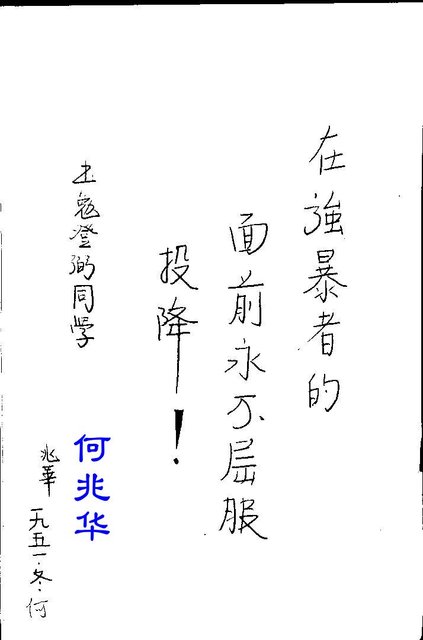 在強暴者的
面前永不屈服
投降！
登弼同学
何兆华
兆華 一九五一·冬·何